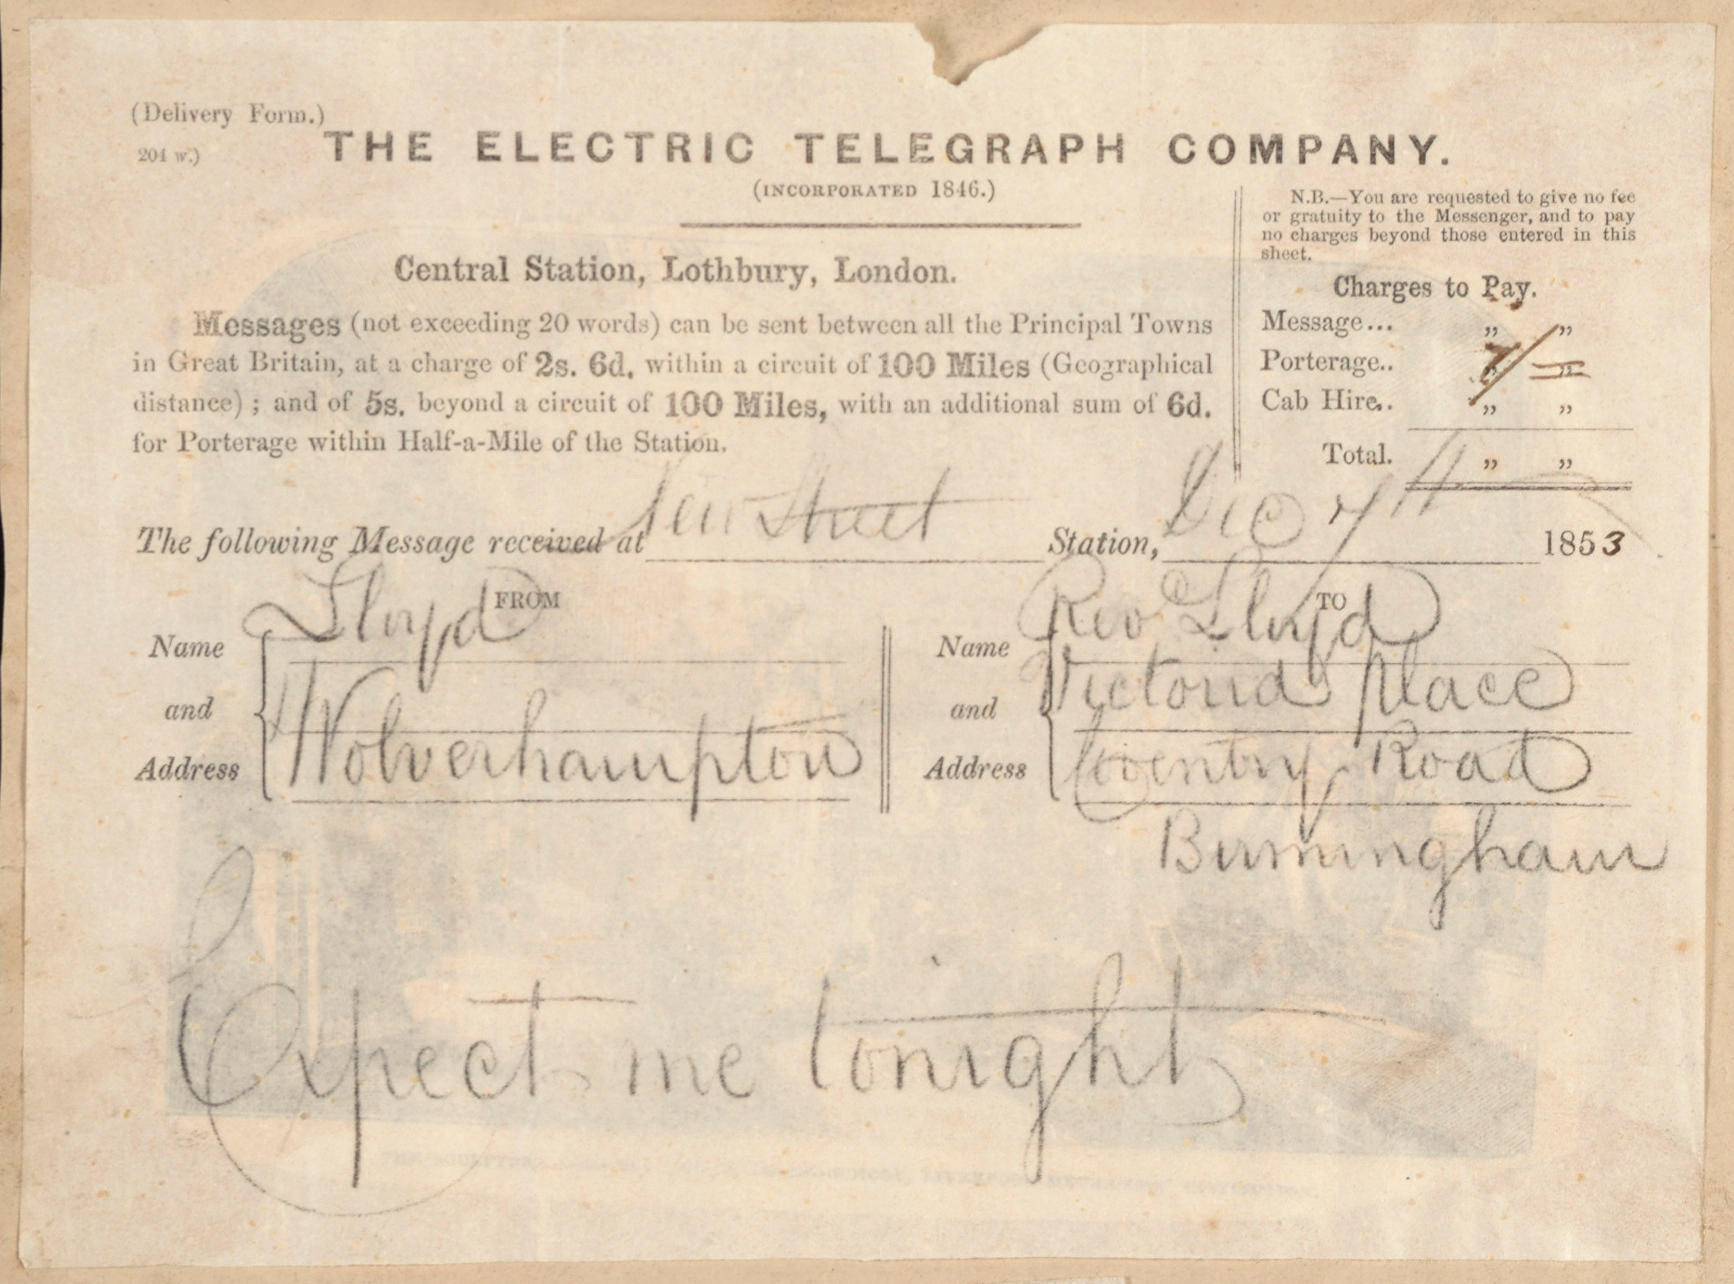 (Delivery Form.)
204 w.)
THE ELECTRIC TELEGRAPH COMPANY.
(INCORPORATED 1846.)
Central Station, Lothbury, London.
Messages (not exceeding 20 words) can be sent between all the Principal Towns
in Great Britain, at a charge of 2s. 6d. within a circuit of 100 Miles (Geographical
distance) ; and of 5s. beyond a circuit of 100 Miles, with an additional sum of 6d.
for Porterage within Half-a-Mile of the Station.
N.B.—You are requested to give no fee
or gratuity to the Messenger, and to pay
no charges beyond those entered in this
sheet.
Charges to Pay.
Message... „ „
Porterage.. 1/=
Cab Hire.. „ „
Total. „ „
The following Message received at New Street Station, Dec 7th 1853
FROM
Name and Address
Lloyd
Wolverhampton
TO
Name and Address
Rev Lloyd
Victoria Place
Coventry Road
Birmingham
Expect me tonight